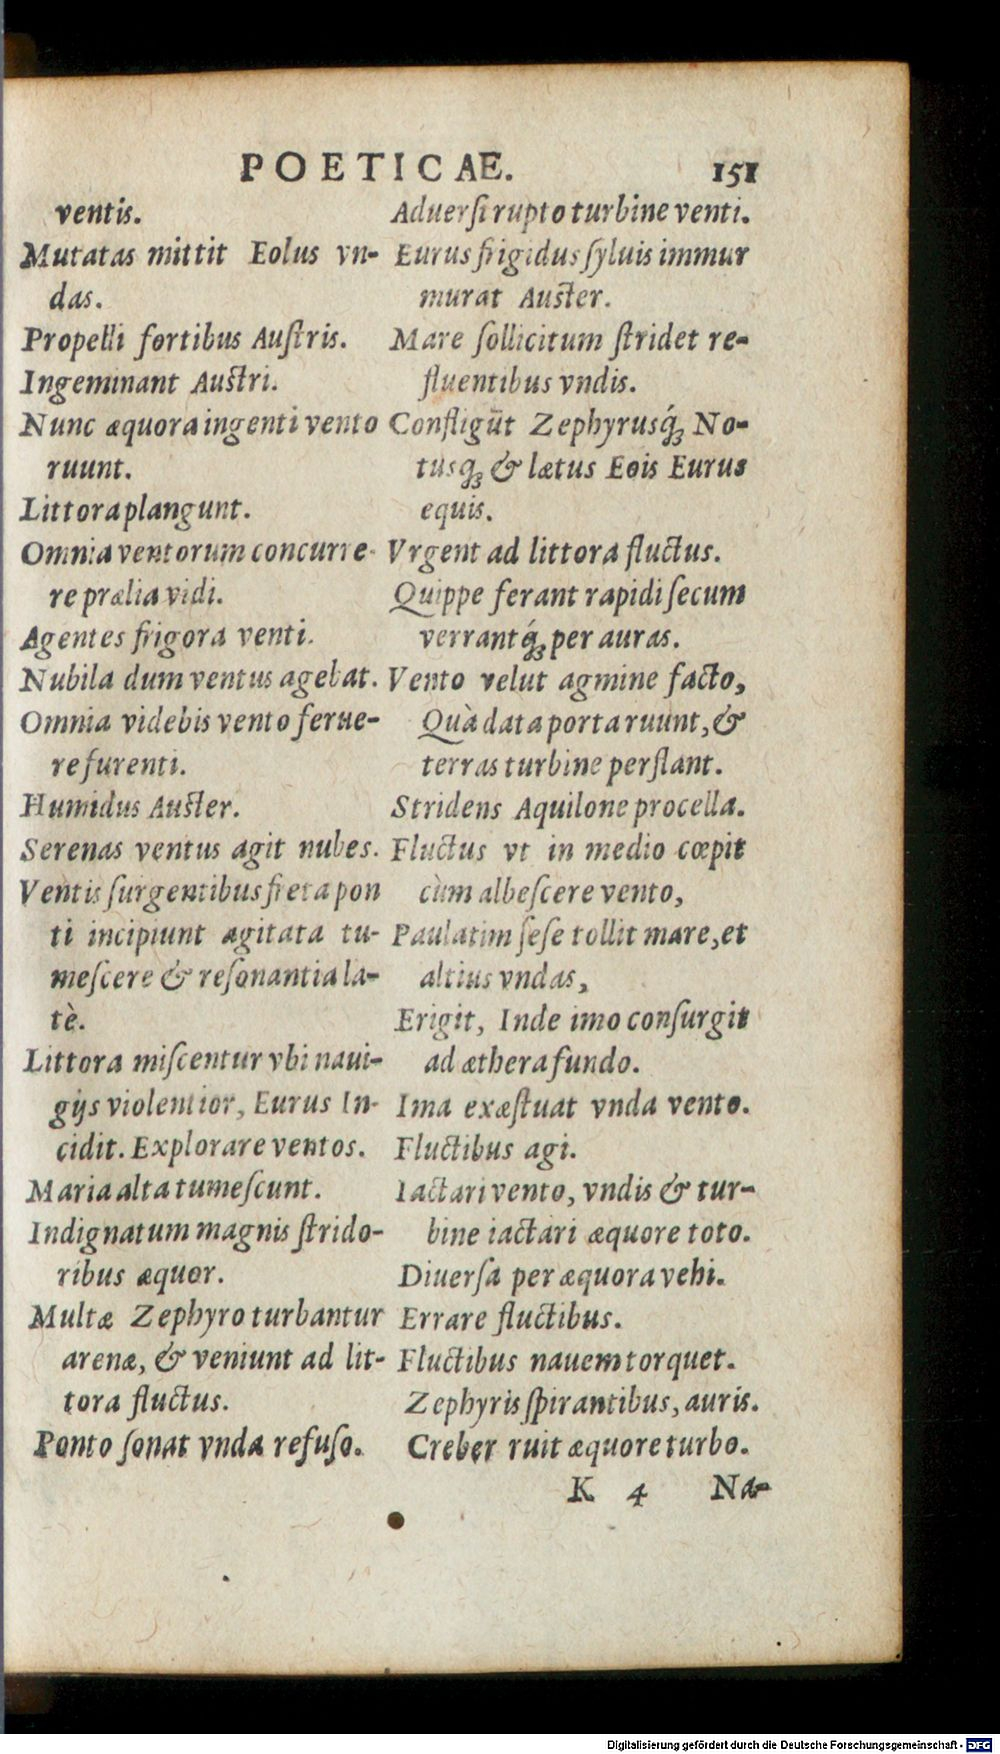 POETICAE. 151
ventis.
Mutatas mittit Eolus vn-
das.
Propelli fortibus Auſtris.
Ingeminant Auſtri.
Nunc æquora ingenti vento
ruunt.
Littora plangunt.
Omnia ventorum concurre-
re prælia vidi.
Agentes frigora venti.
Nubila dum ventus agebat.
Omnia videbis vento ferue-
re furenti.
Humidus Auſter.
Serenas ventus agit nubes.
Ventis ſurgentibus freta pon
ti incipiunt agitata tu-
meſcere & reſonantia la-
tè.
Littora miſcentur vbi naui-
gijs violentior, Eurus In-
cidit. Explorare ventos.
Maria alta tumeſcunt.
Indignatum magnis ſtrido-
ribus æquor.
Multæ Zephyro turbantur
arenæ, & veniunt ad lit-
tora fluctus.
Ponto ſonat vnda refuſo.
Aduerſi rupto turbine venti.
Eurus frigidus ſyluis immur
murat Auſter.
Mare ſollicitum ſtridet re-
fluentibus vndis.
Confligūt Zephyrusq́ꝫ No-
tusqꝫ & lætus Eois Eurus
equis.
Vrgent ad littora fluctus.
Quippe ferant rapidi ſecum
verrantq́ꝫ per auras.
Vento velut agmine facto,
Quà data porta ruunt, &
terras turbine perflant.
Stridens Aquilone procella.
Fluctus vt in medio cœpit
cùm albeſcere vento,
Paulatim ſeſe tollit mare, et
altius vndas,
Erigit, Inde imo conſurgit
ad æthera fundo.
Ima exæſtuat vnda vento.
Fluctibus agi.
Iactari vento, vndis & tur-
bine iactari æquore toto.
Diuerſa per æquora vehi.
Errare fluctibus.
Fluctibus nauem torquet.
Zephyris ſpirantibus, auris.
Creber ruit æquore turbo.
K 4 Na-
Digitalisierung gefördert durch die Deutsche Forschungsgemeinschaft - DFG